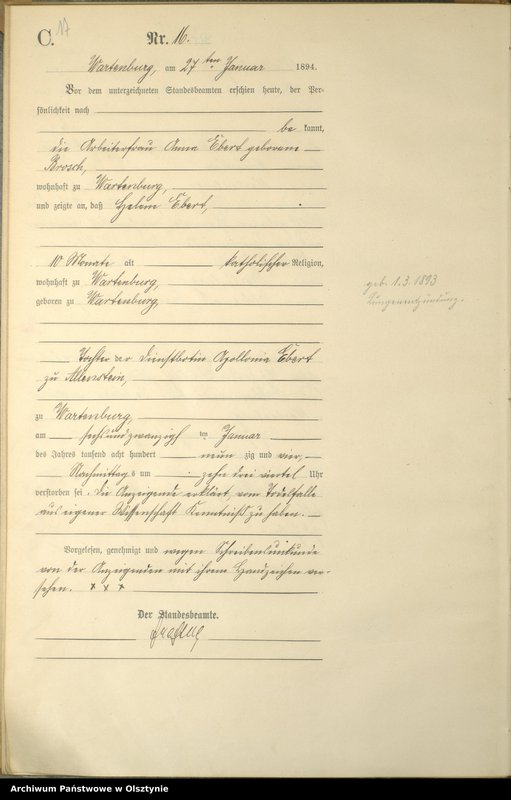 C. 17
Nr. 16.
Wartenburg, am 27ten Januar 1894.
Vor dem unterzeichneten Standesbeamten erschien heute, der Per-
sönlichkeit nach
be kannt,
die Arbeiterfrau Anna Ebert geborene
Brosch,
wohnhaft zu Wartenburg,
und zeigte an, daß Helene Ebert,
10 Monate alt katholischer Religion,
wohnhaft zu Wartenburg,
geboren zu Wartenburg,
geb. 1.3.1893
Lungenentzündung.
Tochter der Dienstbotin Apollonia Ebert
zu Allenstein,
zu Wartenburg,
am sechsundzwanzigsten Januar
des Jahres tausend acht hundert neunzig und vier,
Nachmittags um zehn drei viertel Uhr
verstorben sei. Die Anzeigende erklärt, vom Todesfalle
aus eigener Wissenschaft Kenntniß zu haben.
Vorgelesen, genehmigt und wegen Schreibensunkunde
von der Anzeigenden mit ihrem Handzeichen ver-
sehen. x x x
Der Standesbeamte.
Archiwum Państwowe w Olsztynie